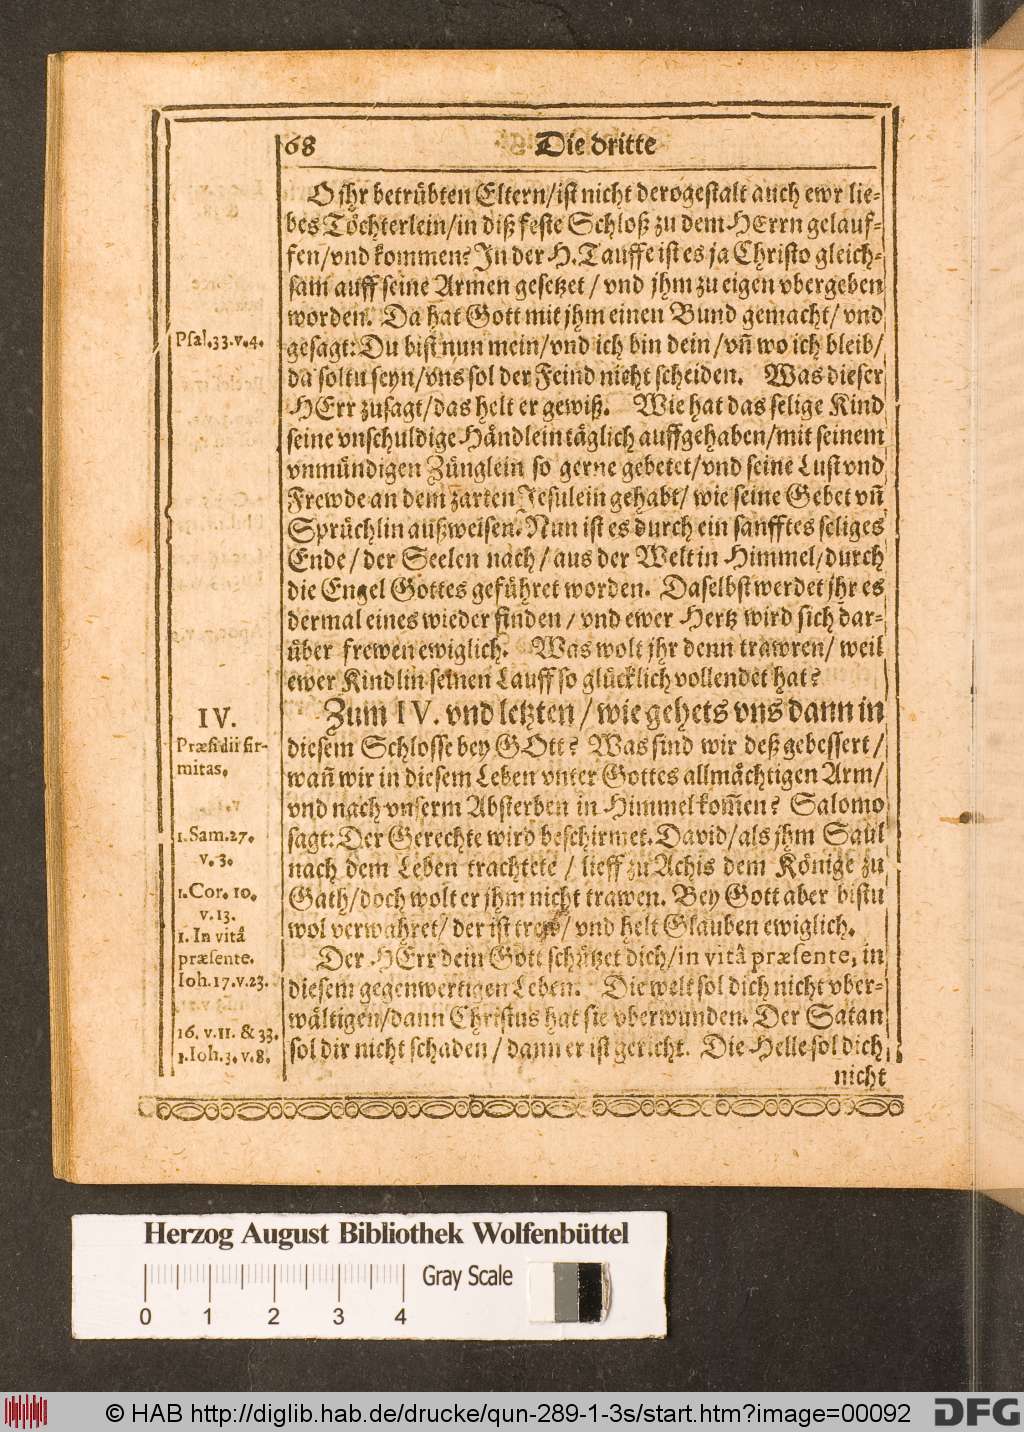 68 Die dritte
O jhr betrübten Eltern/ist nicht derogestalt auch ewr lie-
bes Töchterlein/in diß feste Schloß zu dem HErrn gelauf-
fen/vnd kommen? In der H. Tauffe ist es ja Christo gleich-
sam auff seine Armen gesetzet / vnd jhm zu eigen vbergeben
worden. Da hat Gott mit jhm einen Bund gemacht/ vnd
Psal.33.v.4.
gesagt: Du bist nun mein/vnd ich bin dein /vñ wo ich bleib/
da soltu seyn/vns sol der Feind nicht scheiden. Was dieser
HErr zusagt/das helt er gewiß. Wie hat das selige Kind
seine vnschuldige Händlein täglich auffgehaben/mit seinem
vnmündigen Zünglein so gerne gebetet/vnd seine Lust vnd
Frewde an dem zarten Jesulein gehabt/ wie seine Gebet vñ
Sprüchlin außweisen. Nun ist es durch ein sanfftes seliges
Ende / der Seelen nach / aus der Welt in Himmel/durch
die Engel Gottes geführet worden. Daselbst werdet jhr es
dermal eines wieder finden / vnd ewer Hertz wird sich dar-
über frewen ewiglich. Was wolt jhr denn trawren/ weil
ewer Kindlin seinen Lauff so glücklich vollendet hat?
IV.
Zum IV. vnd letzten / wie gehets vns dann in
Præsidii fir-
mitas.
diesem Schlosse bey GOtt? Was sind wir deß gebessert /
wañ wir in diesem Leben vnter Gottes allmächtigen Arm/
vnd nach vnserm Absterben in Himmel kom̃en? Salomo
1.Sam.27.
v.3.
sagt: Der Gerechte wird beschirmet. David/als jhm Saul
nach dem Leben trachtete / lieff zu Achis dem Könige zu
1.Cor. 10.
v.13.
Gath/doch wolt er jhm nicht trawen. Bey Gott aber bistu
wol verwahret/ der ist trew/ vnd helt Glauben ewiglich.
1. In vitâ
præsente.
Der HErr dein Gott schützet dich/in vitâ præsente, in
Ioh.17.v.23.
diesem gegenwertigen Leben. Die welt sol dich nicht vber-
wältigen/dann Christus hat sie vberwunden. Der Satan
16. v.11. & 33.
1.Ioh.3.v.8.
sol dir nicht schaden / dann er ist gericht. Die Helle sol dich
nicht
Herzog August Bibliothek Wolfenbüttel
Gray Scale
0 1 2 3 4
© HAB http://diglib.hab.de/drucke/qun-289-1-3s/start.htm?image=00092
DFG